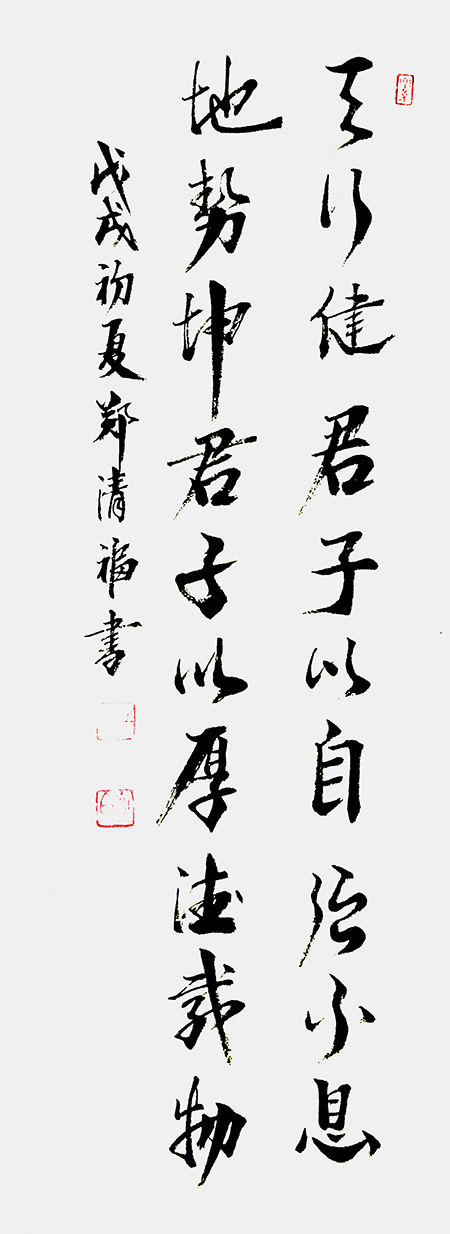 天行健君子以自强不息
地勢坤君子以厚德載物
戊戌初夏郑清福书